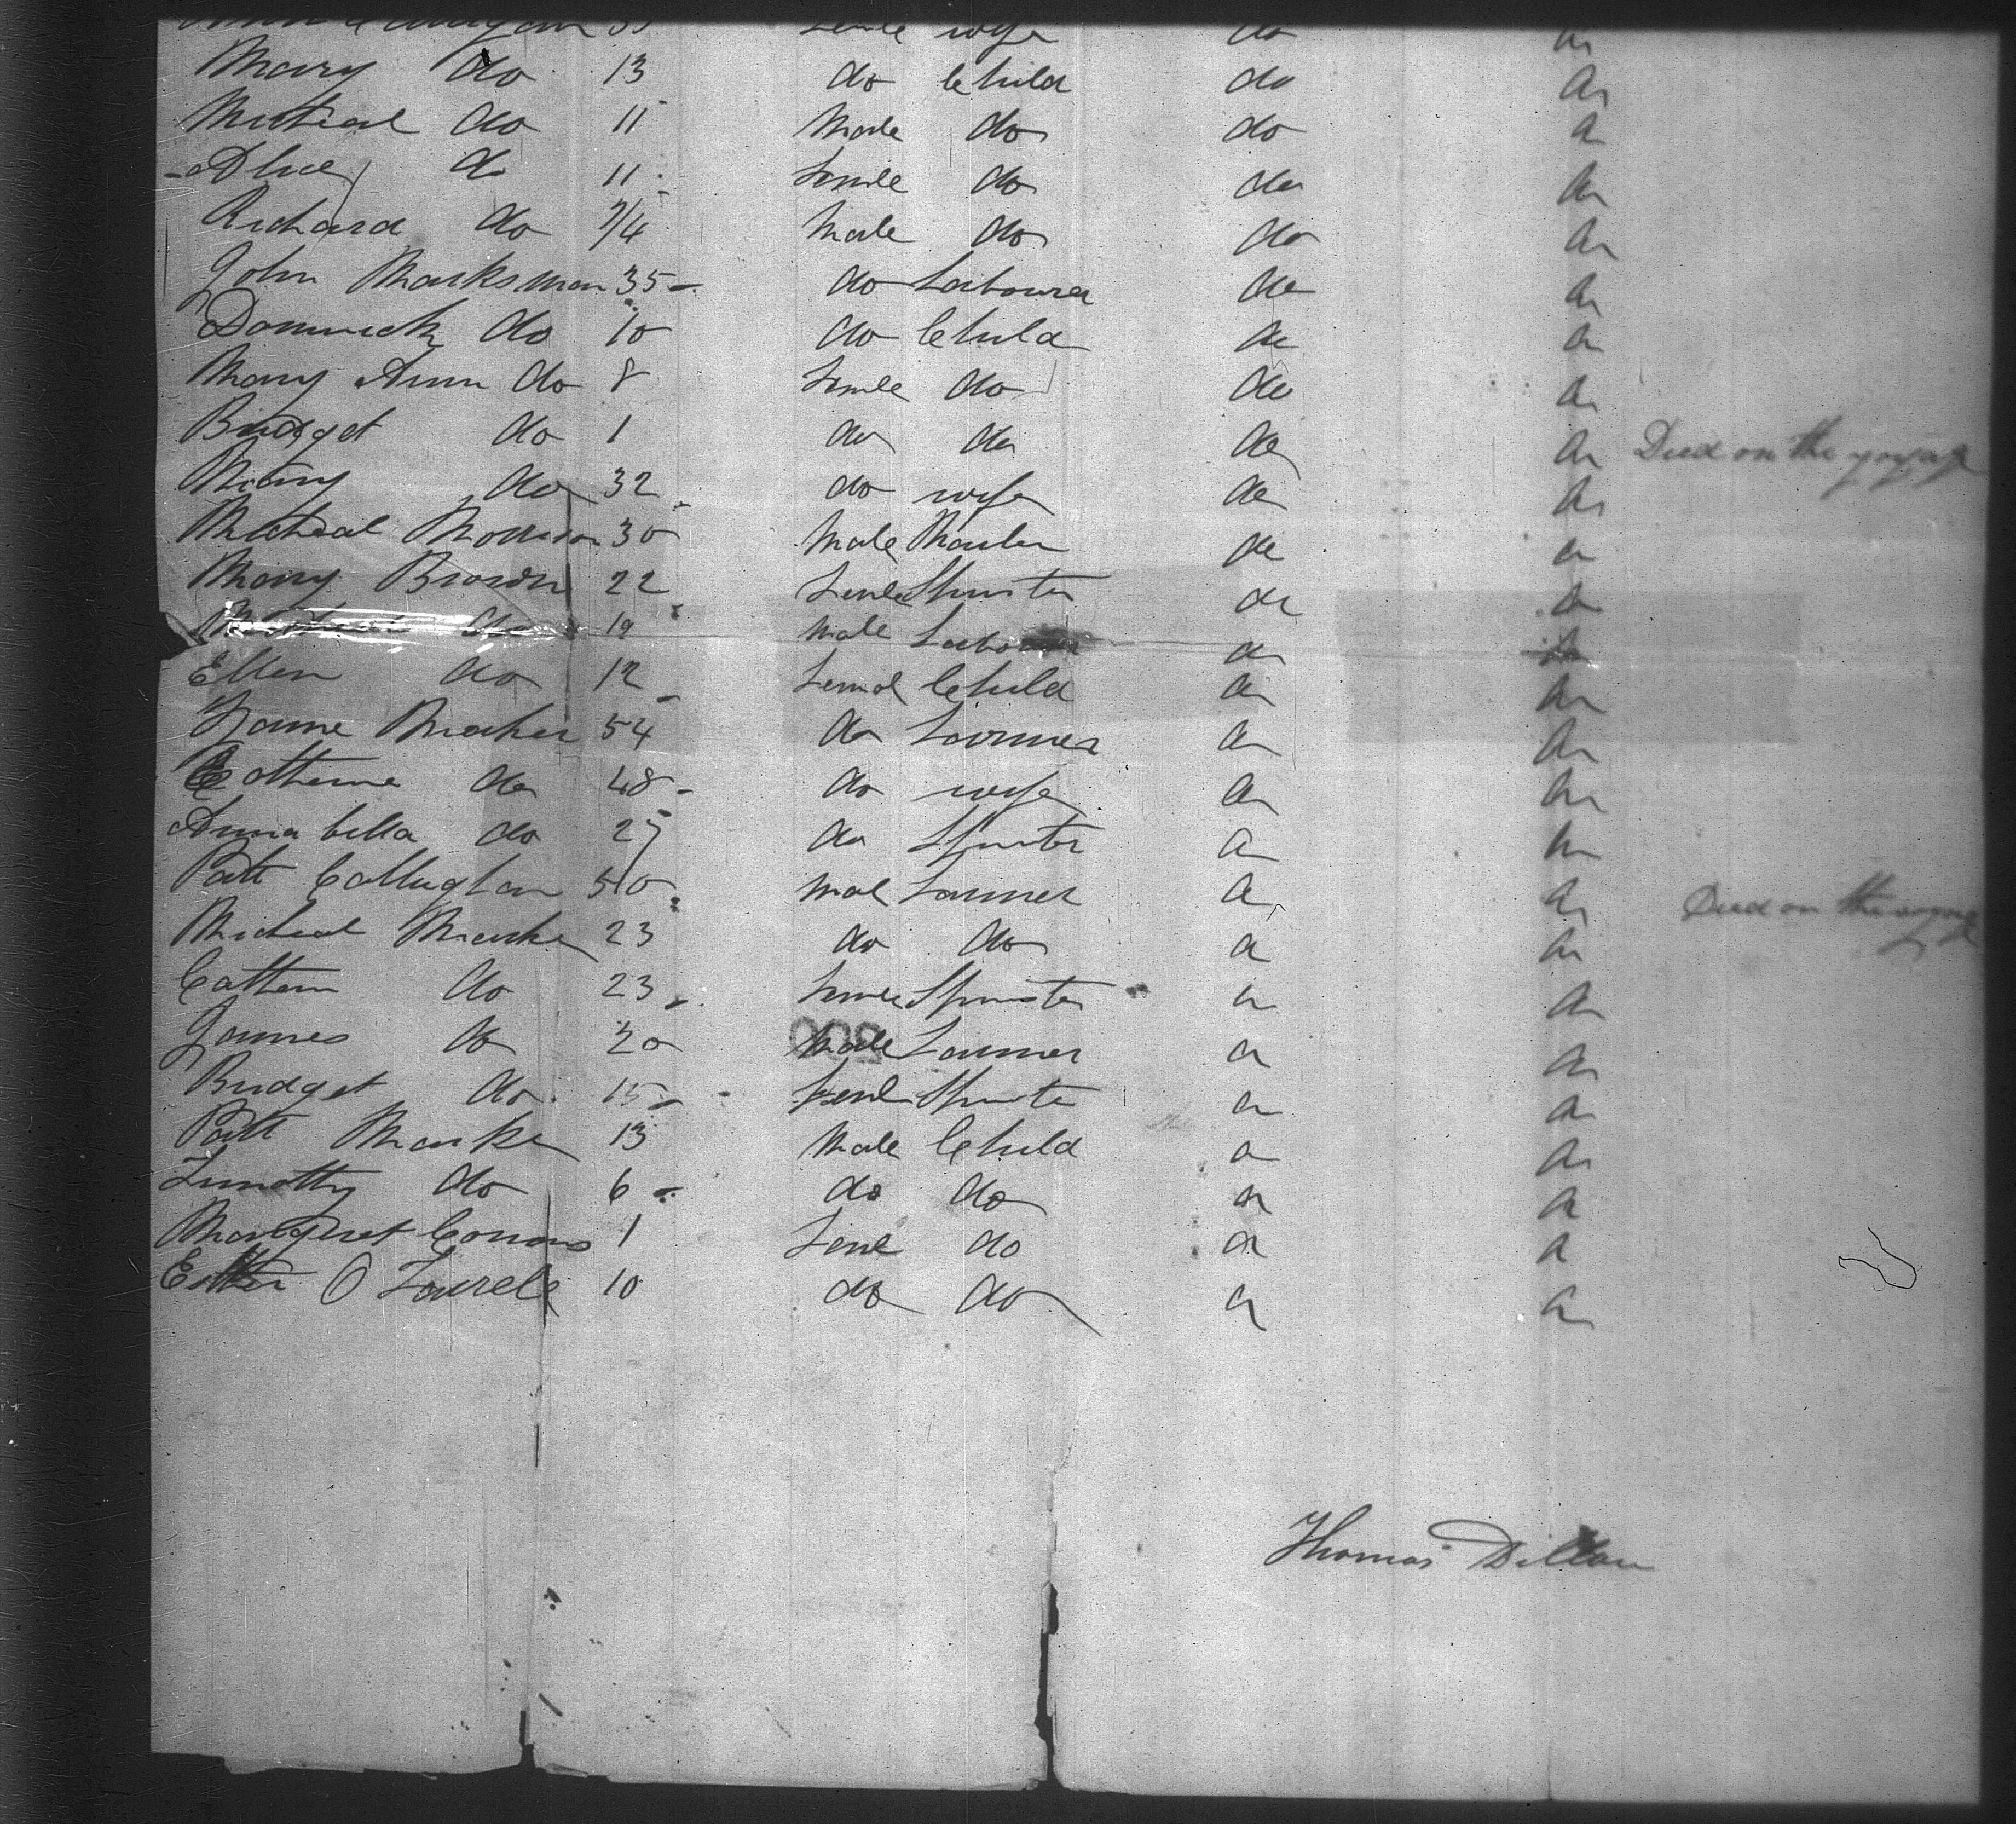 wife do
Mary do 13 do Child do do
Micheal do 11 Male do do do
Alice do 11 Femle do do do
Richard do 3/4 Male do do do
John Marksman 35 do Labourer do do
Dominick do 10 do Child do do
Mary Ann do 8 Femle do do do
Bridget do 1 do do do do Died on the voyage
Mary do 32 do wife do do
Micheal Morrison 30 Male do do
Mary Brown 22 Femle Spinster do do
do 19 Male Labourer do do
Ellen do 12 Femal Child do do
54 do Farmer do do
Catherine do 48 do wife do do
Anna bella do 27 do Spinster do do
Patt Callaghan 50 Mal Farmer do do Died on the voyage
Micheal 23 do do do do
Cathern do 23 Femle Spinster do do
James do 20 Male Farmer do do
Bridget do 15 Feml Spinster do do
Patt 13 Male Child do do
Timothy do 6 do do do do
Margret 1 Feml do do do
O 10 do do do do
Thomas Dillon